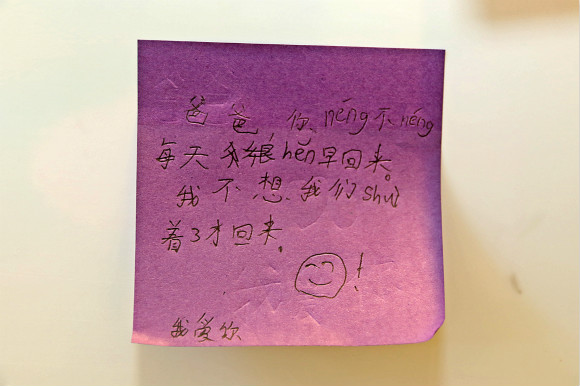 爸爸，你néng不néng
每天很hěn早回来。
我不想我们shuì
着3才回来。
！
我爱你